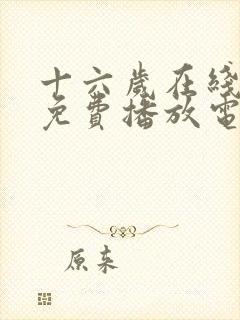 十六歲在綫
免費播放電
原来